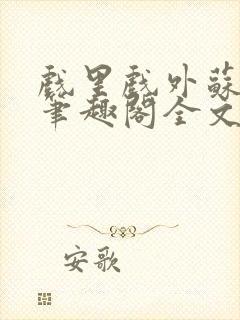 戲里戲外蘇
筆趣閣全文
安歌